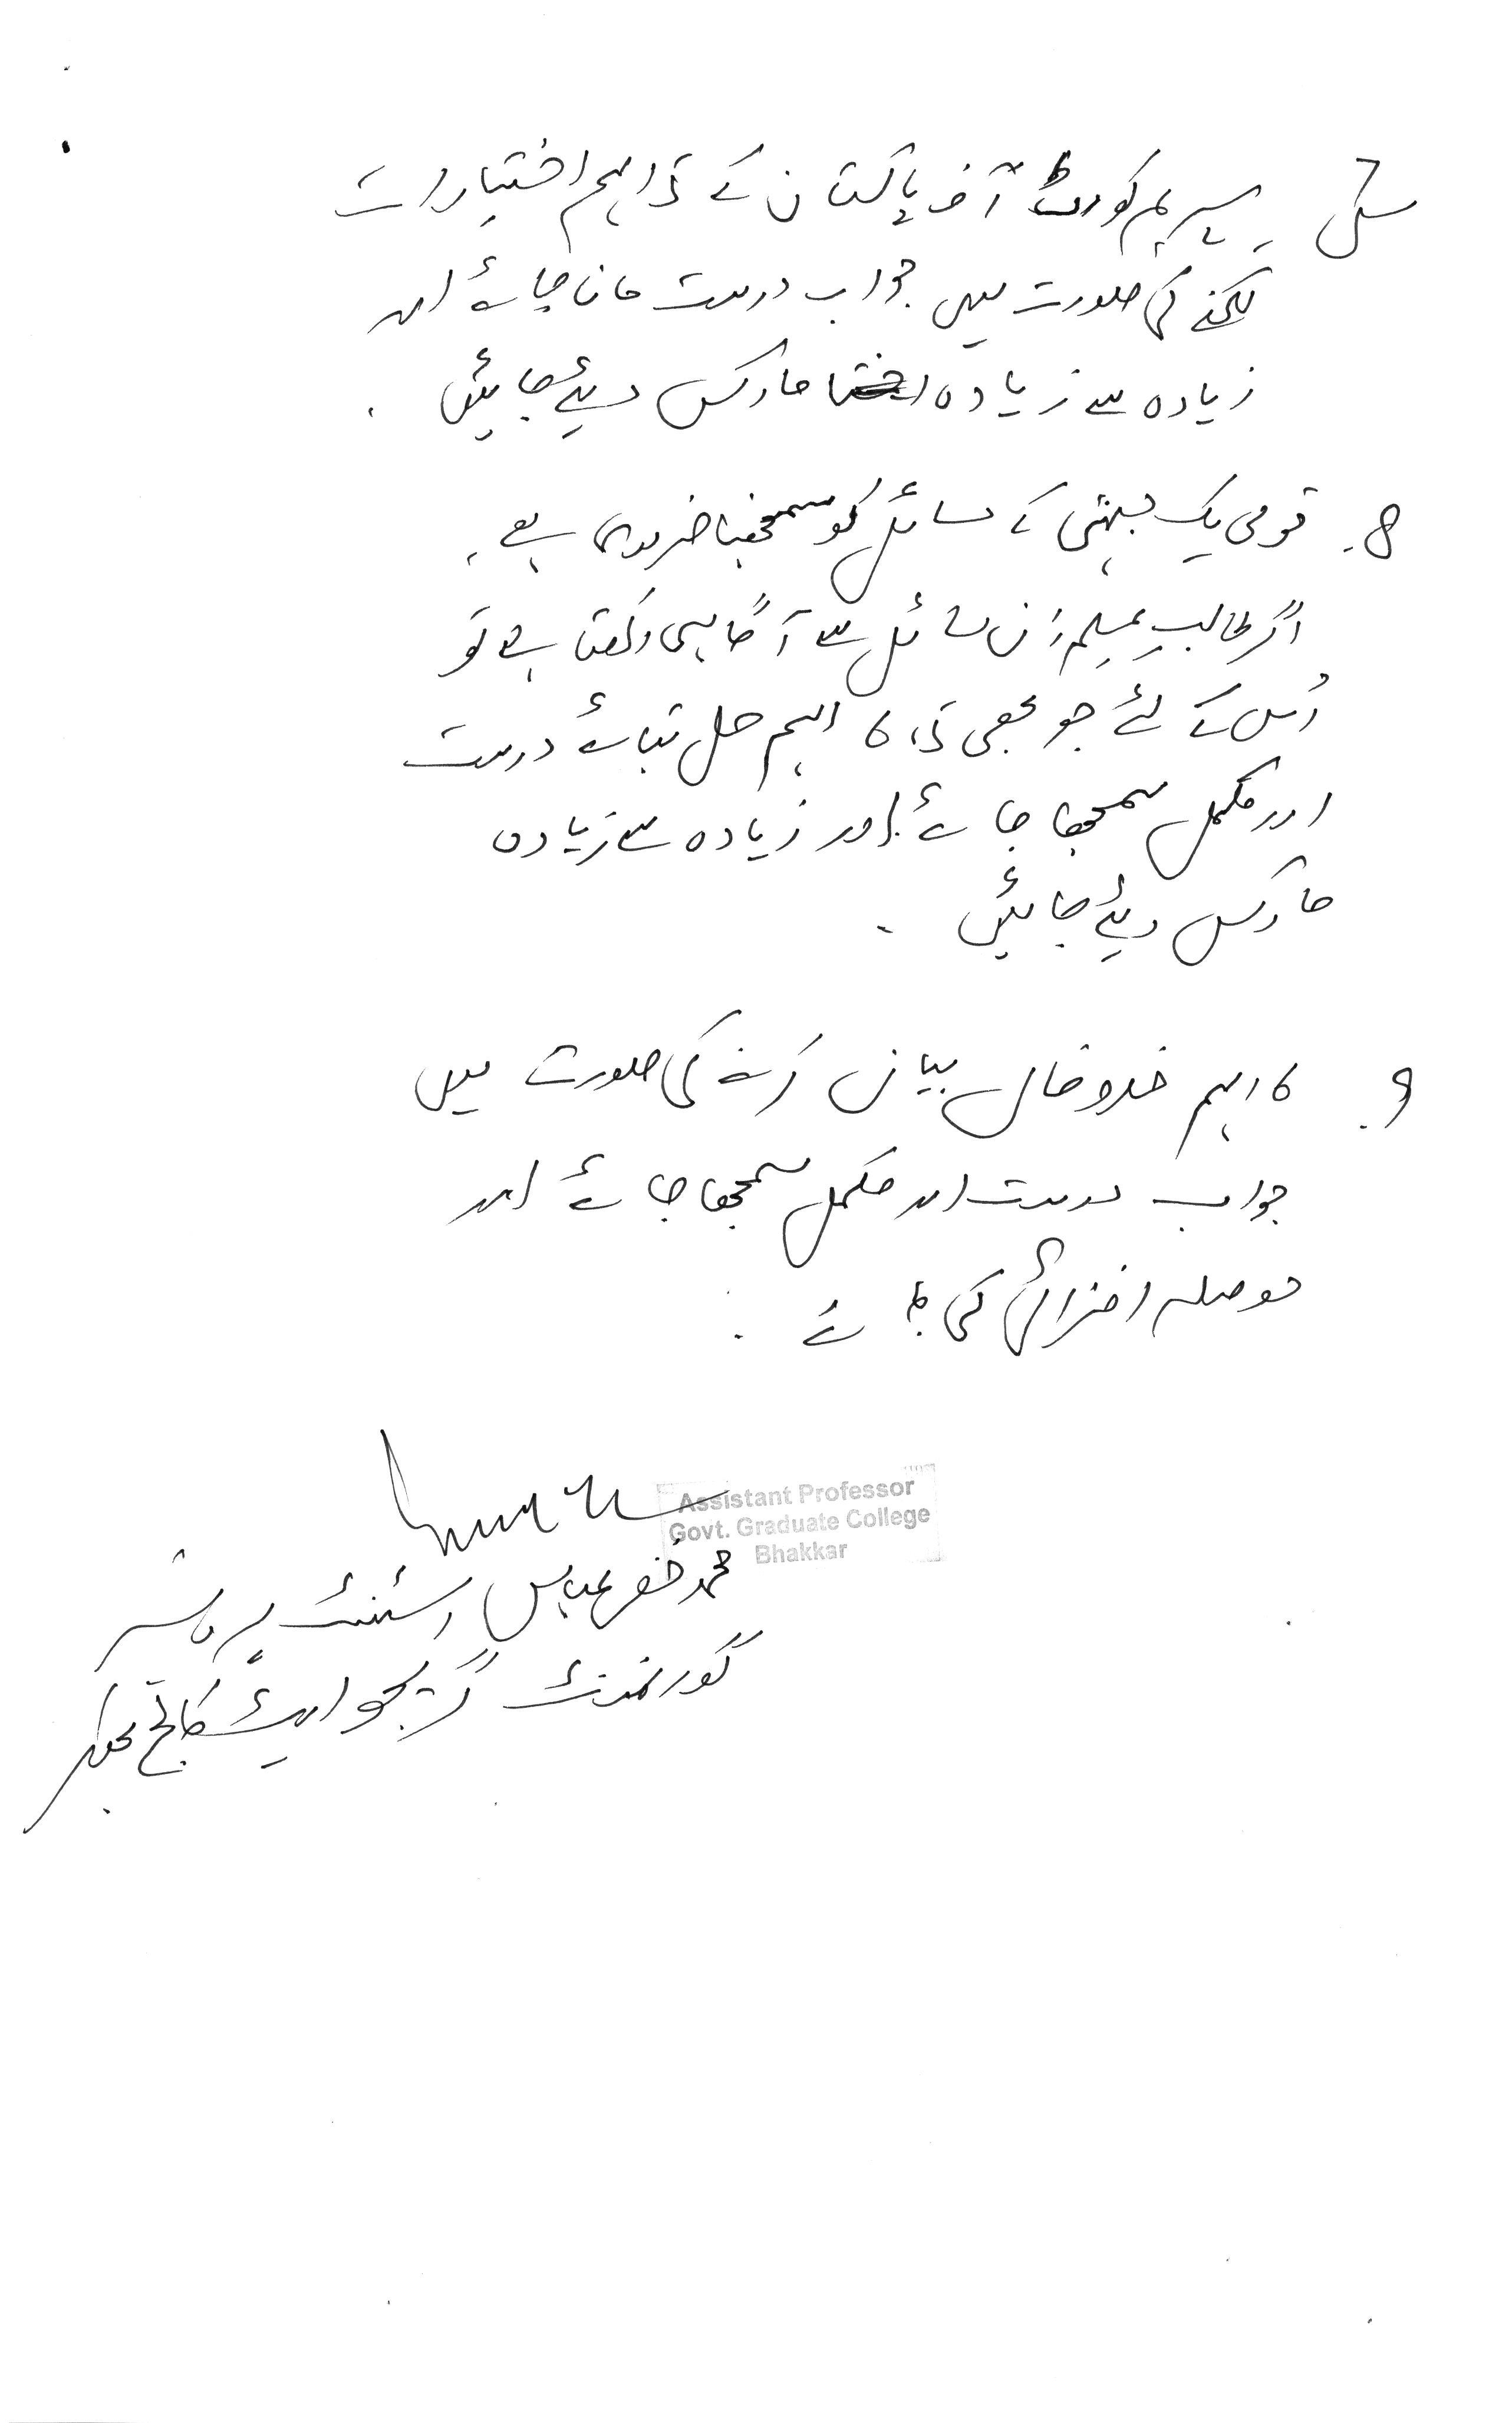 س7 سپریم کورٹ آف پاکستان کے 5 اہم اختیارات
لکھنے کی صورت میں جواب درست مانا جائے اور
زیادہ سے زیادہ مارکس دیئے جائیں .
8. قومی یک جہتی کے مسائل کو سمجھنا ضروری ہے .
اگر طالب علم ان مسائل سے آگاہی رکھتا ہے تو
اُس کے لئے جو بھی 5، 6 اہم حل بتائے درست
اور مکمل سمجھا جائے اور زیادہ سے زیادہ
مارکس دیئے جائیں .
9. 6 اہم خدوخال بیان کرنے کی صورت میں
جواب درست اور مکمل سمجھا جائے اور
حوصلہ افزائی کی جائے .
Assistant Professor
Govt. Graduate College
Bhakkar
محمد عباس اسسٹنٹ پروفیسر
گورنمنٹ گریجوایٹ کالج بھکر